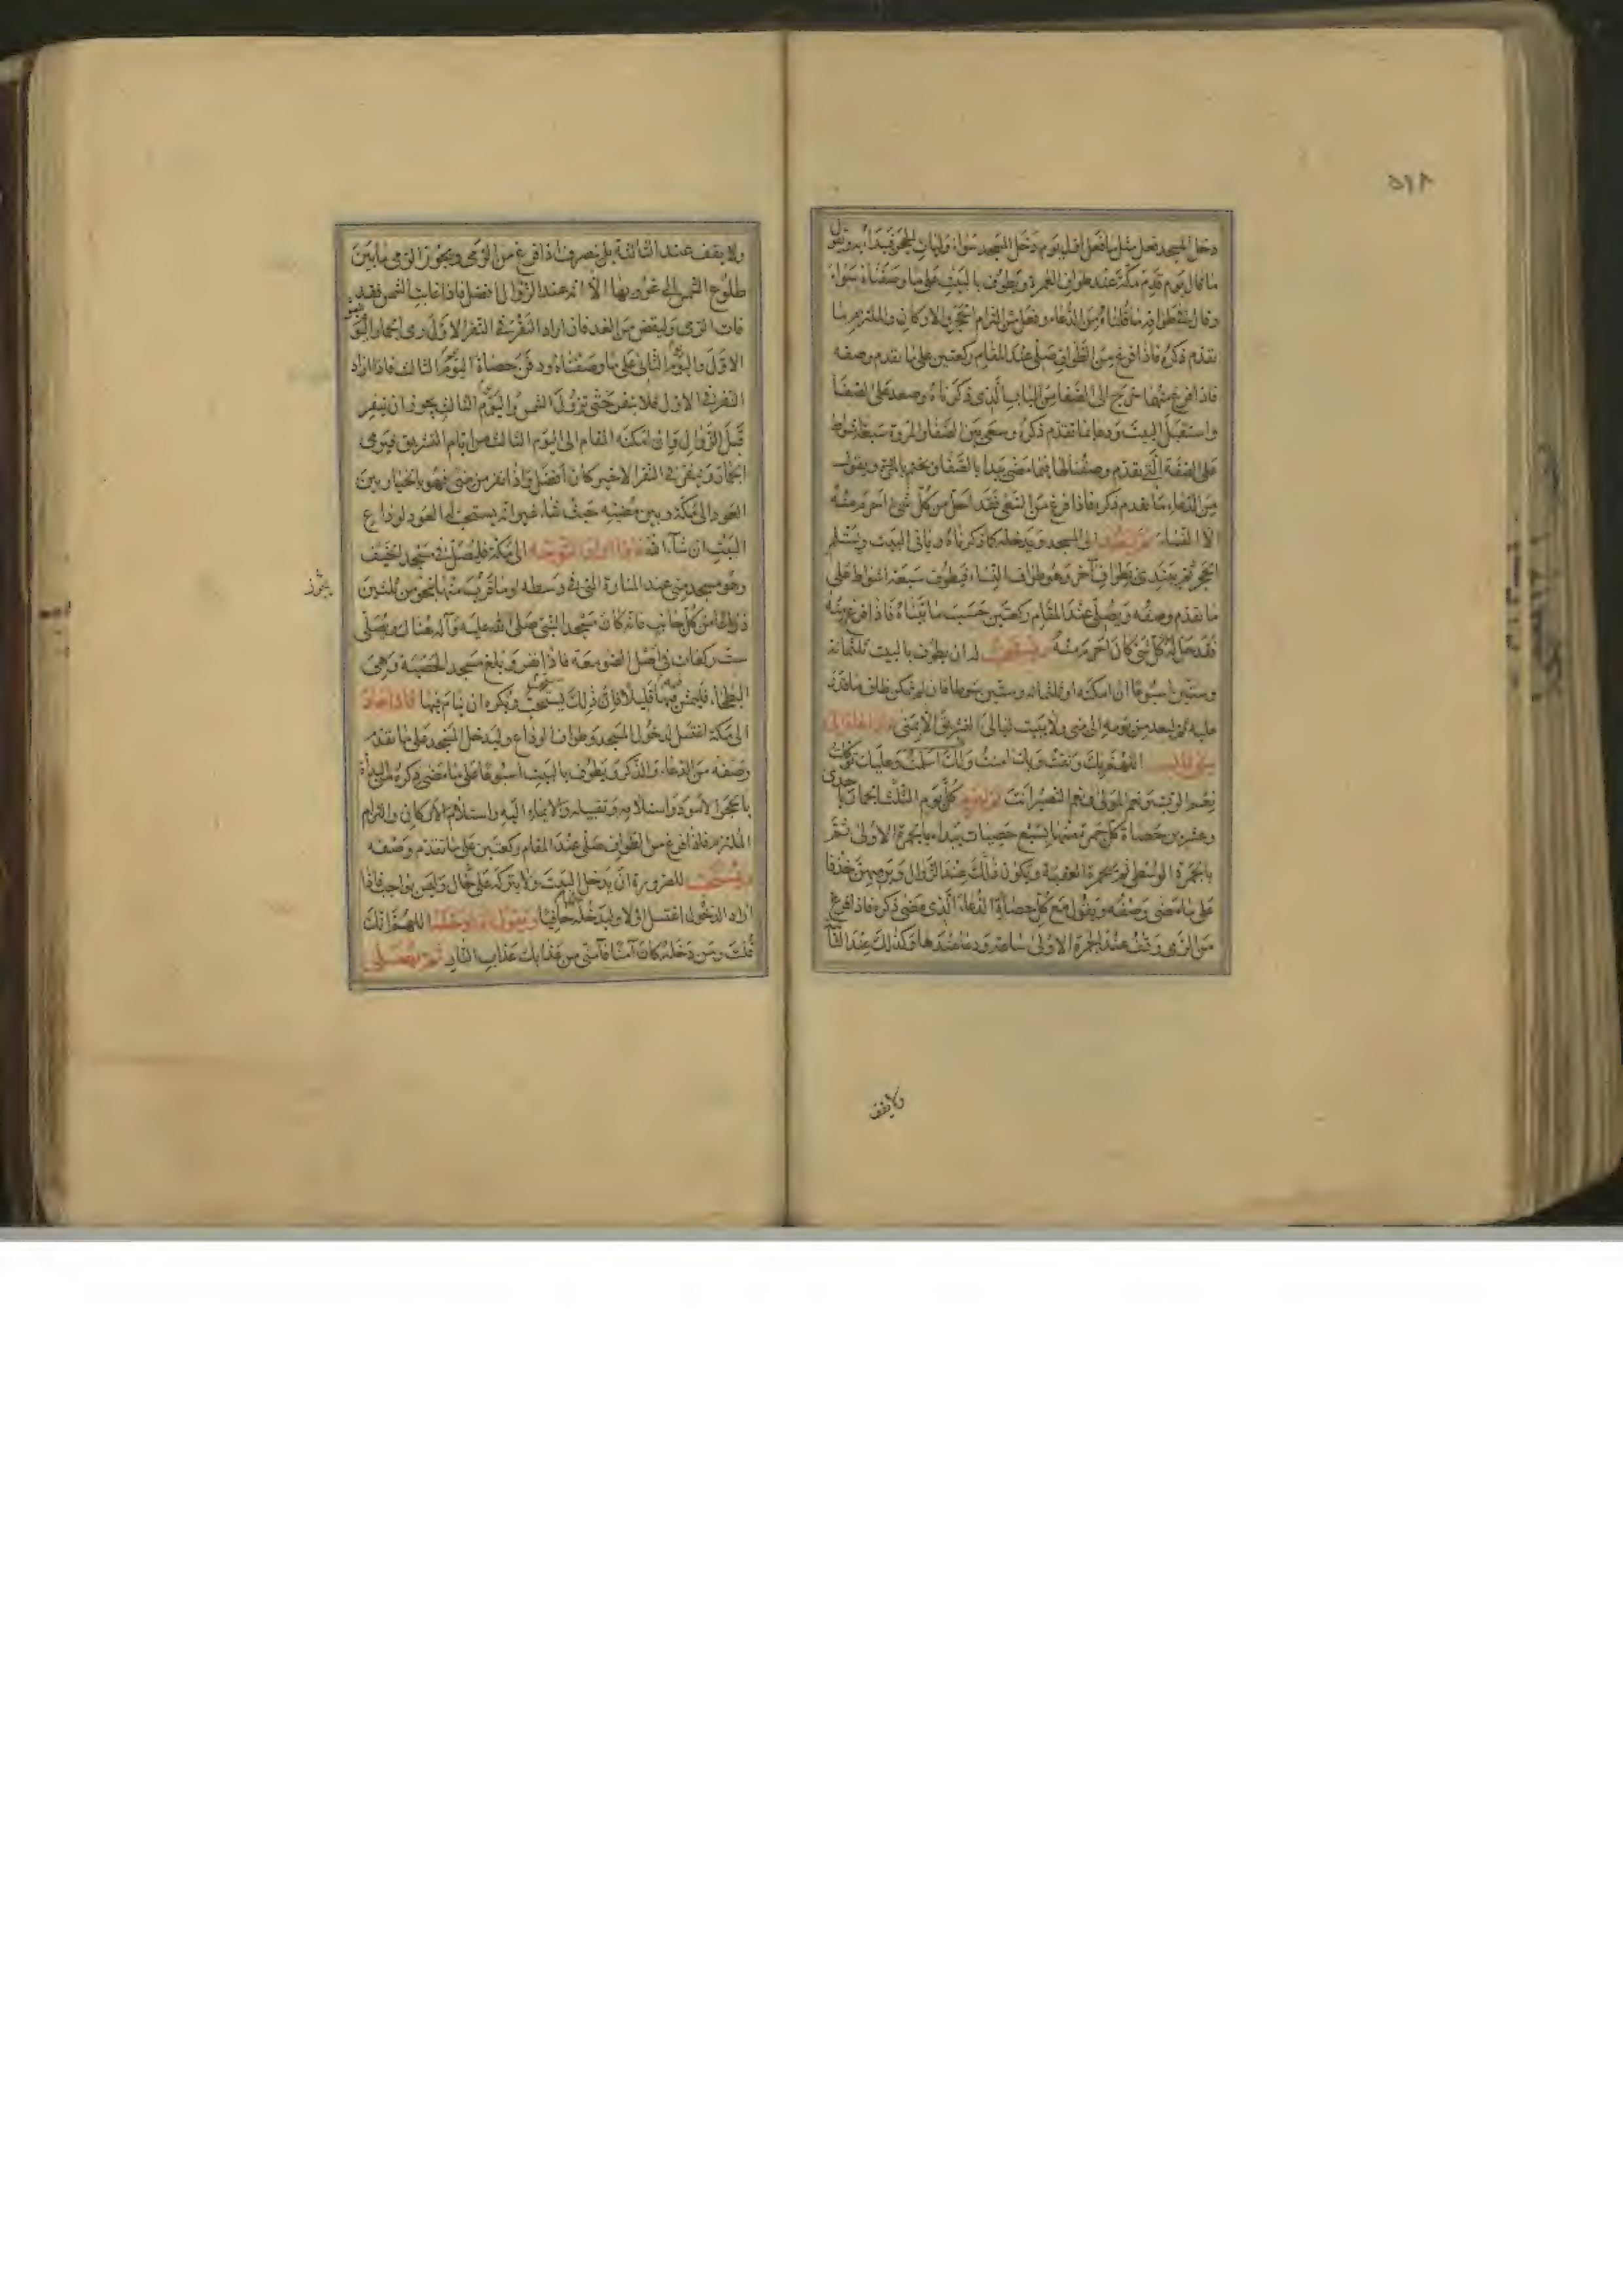 ٥٩٨
دخل المسجد فعل مثل ما فعل اول يوم دخل المسجد سواء وليات الحجر فيبدأ به ويقول
ما قال يوم قدم مكة عند طواف العمرة ويطوف بالبيت على ما وصفناه سواء
وقال في طوافه ما قلناه من الدعاء وفعل من التزام الحجر والاركان والملتزم ما
تقدم ذكره فاذا فرغ من الطواف صلى عند المقام ركعتين على ما تقدم وصفه
فاذا فرغ منهما خرج الى الصفا من الباب الذى ذكرناه وصعد على الصفا
واستقبل البيت ودعا بما تقدم ذكره وسعى بين الصفا والمروة سبعة اشواط
على الصفة التي تقدم وصفنا لها فيما مضى يبدأ بالصفا ويختم بالمروة ويقول
من الدعاء ما تقدم ذكره فاذا فرغ من السعى فقد احل من كل شئ احرم منه
الا النساء ثم ليعد الى المسجد ويدخله كما ذكرناه وياتى البيت ويستلم
الحجر ثم يبتدئ بطواف آخر وهو طواف النساء فيطوف سبعة اشواط على
ما تقدم وصفه ويصلى عند المقام ركعتين حسب ما بيناه فاذا فرغ منه
فقد حل له كل شئ كان احرم منه ويستحب له ان يطوف بالبيت ثلثمائة
وستين اسبوعا ان امكنه او ثلثمائة وستين شوطا فان لم يتمكن طاف ما قدر
عليه ثم ليعد من يومه الى منى ولا يبيت ليالى التشريق الا بمنى فاذا عاد الى
منى قال اللهم بك وثقت وبك امنت ولك اسلمت وعليك توكلت
نعم الرب ونعم المولى ونعم النصير انت ثم ليرم كل يوم الثلث الجمار باحدى
وعشرين حصاة كل جمرة منها بسبع حصيات يبدأ بالجمرة الاولى ثم
بالجمرة الوسطى ثم بجمرة العقبة ويكون ذلك عند الزوال ويرميهن خذفا
على ما مضى وصفه ويقول مع كل حصاة الدعاء الذى مضى ذكره فاذا فرغ
من الرمى وقف عند الجمرة الاولى ساعة ودعا عندها وكذلك عند الثانية
ولا يقف
ولا يقف عند الثالثة بل ينصرف اذا فرغ من الرمى ويجوز الرمى ما بين
طلوع الشمس الى غروبها الا انه عند الزوال افضل فاذا غابت الشمس فقد
فات الرمى وليقض من الغد فان اراد النفر فى النفر الاول رمى الجمار اليوم
الاول واليوم الثانى على ما وصفناه ودفن حصاة اليوم الثالث فاذا اراد
النفر فى الاول فلا ينفر حتى تزول الشمس واليوم الثالث يجوز ان ينفر
قبل الزوال وان امكنه المقام الى اليوم الثالث من ايام التشريق فيرمى
الجمار وينفر فى النفر الاخير كان افضل واذا نفر من منى فهو بالخيار بين
العود الى مكة وبين مضيه حيث شاء غير انه يستحب له العود لوداع
البيت ان شاء الله فاذا اراد التوجه الى مكة فليصل فى مسجد الخيف
وهو مسجد منى عند المنارة التى فى وسطه او ما قرب منها بنحو من ثلثين
ذراعا من كل جانب فانه كان مسجد النبى صلى الله عليه وآله هناك ويصلى
ست ركعات فى اصل الصومعة فاذا نفر وبلغ مسجد الحصبة وهى
البطحاء فليمش فيها قليلا فان ذلك يستحب ويكره ان ينام فيها فاذا عاد
الى مكة اغتسل لدخول المسجد وطواف الوداع وليدخل المسجد على ما تقدم
وصفه من الدعاء والذكر ويطوف بالبيت اسبوعا على ما مضى ذكره من البدأة
بالحجر الاسود واستلامه وتقبيله والايماء اليه واستلام الاركان والتزام
الملتزم فاذا فرغ من الطواف صلى عند المقام ركعتين على ما تقدم وصفه
ويستحب للصرورة ان يدخل البيت ولا يتركه على حال وليس بواجب فاذا
اراد الدخول اغتسل اولا وليدخله حافيا ويقول اذا دخله اللهم انك
قلت ومن دخله كان آمنا فآمنى من عذابك عذاب النار ثم يصلى